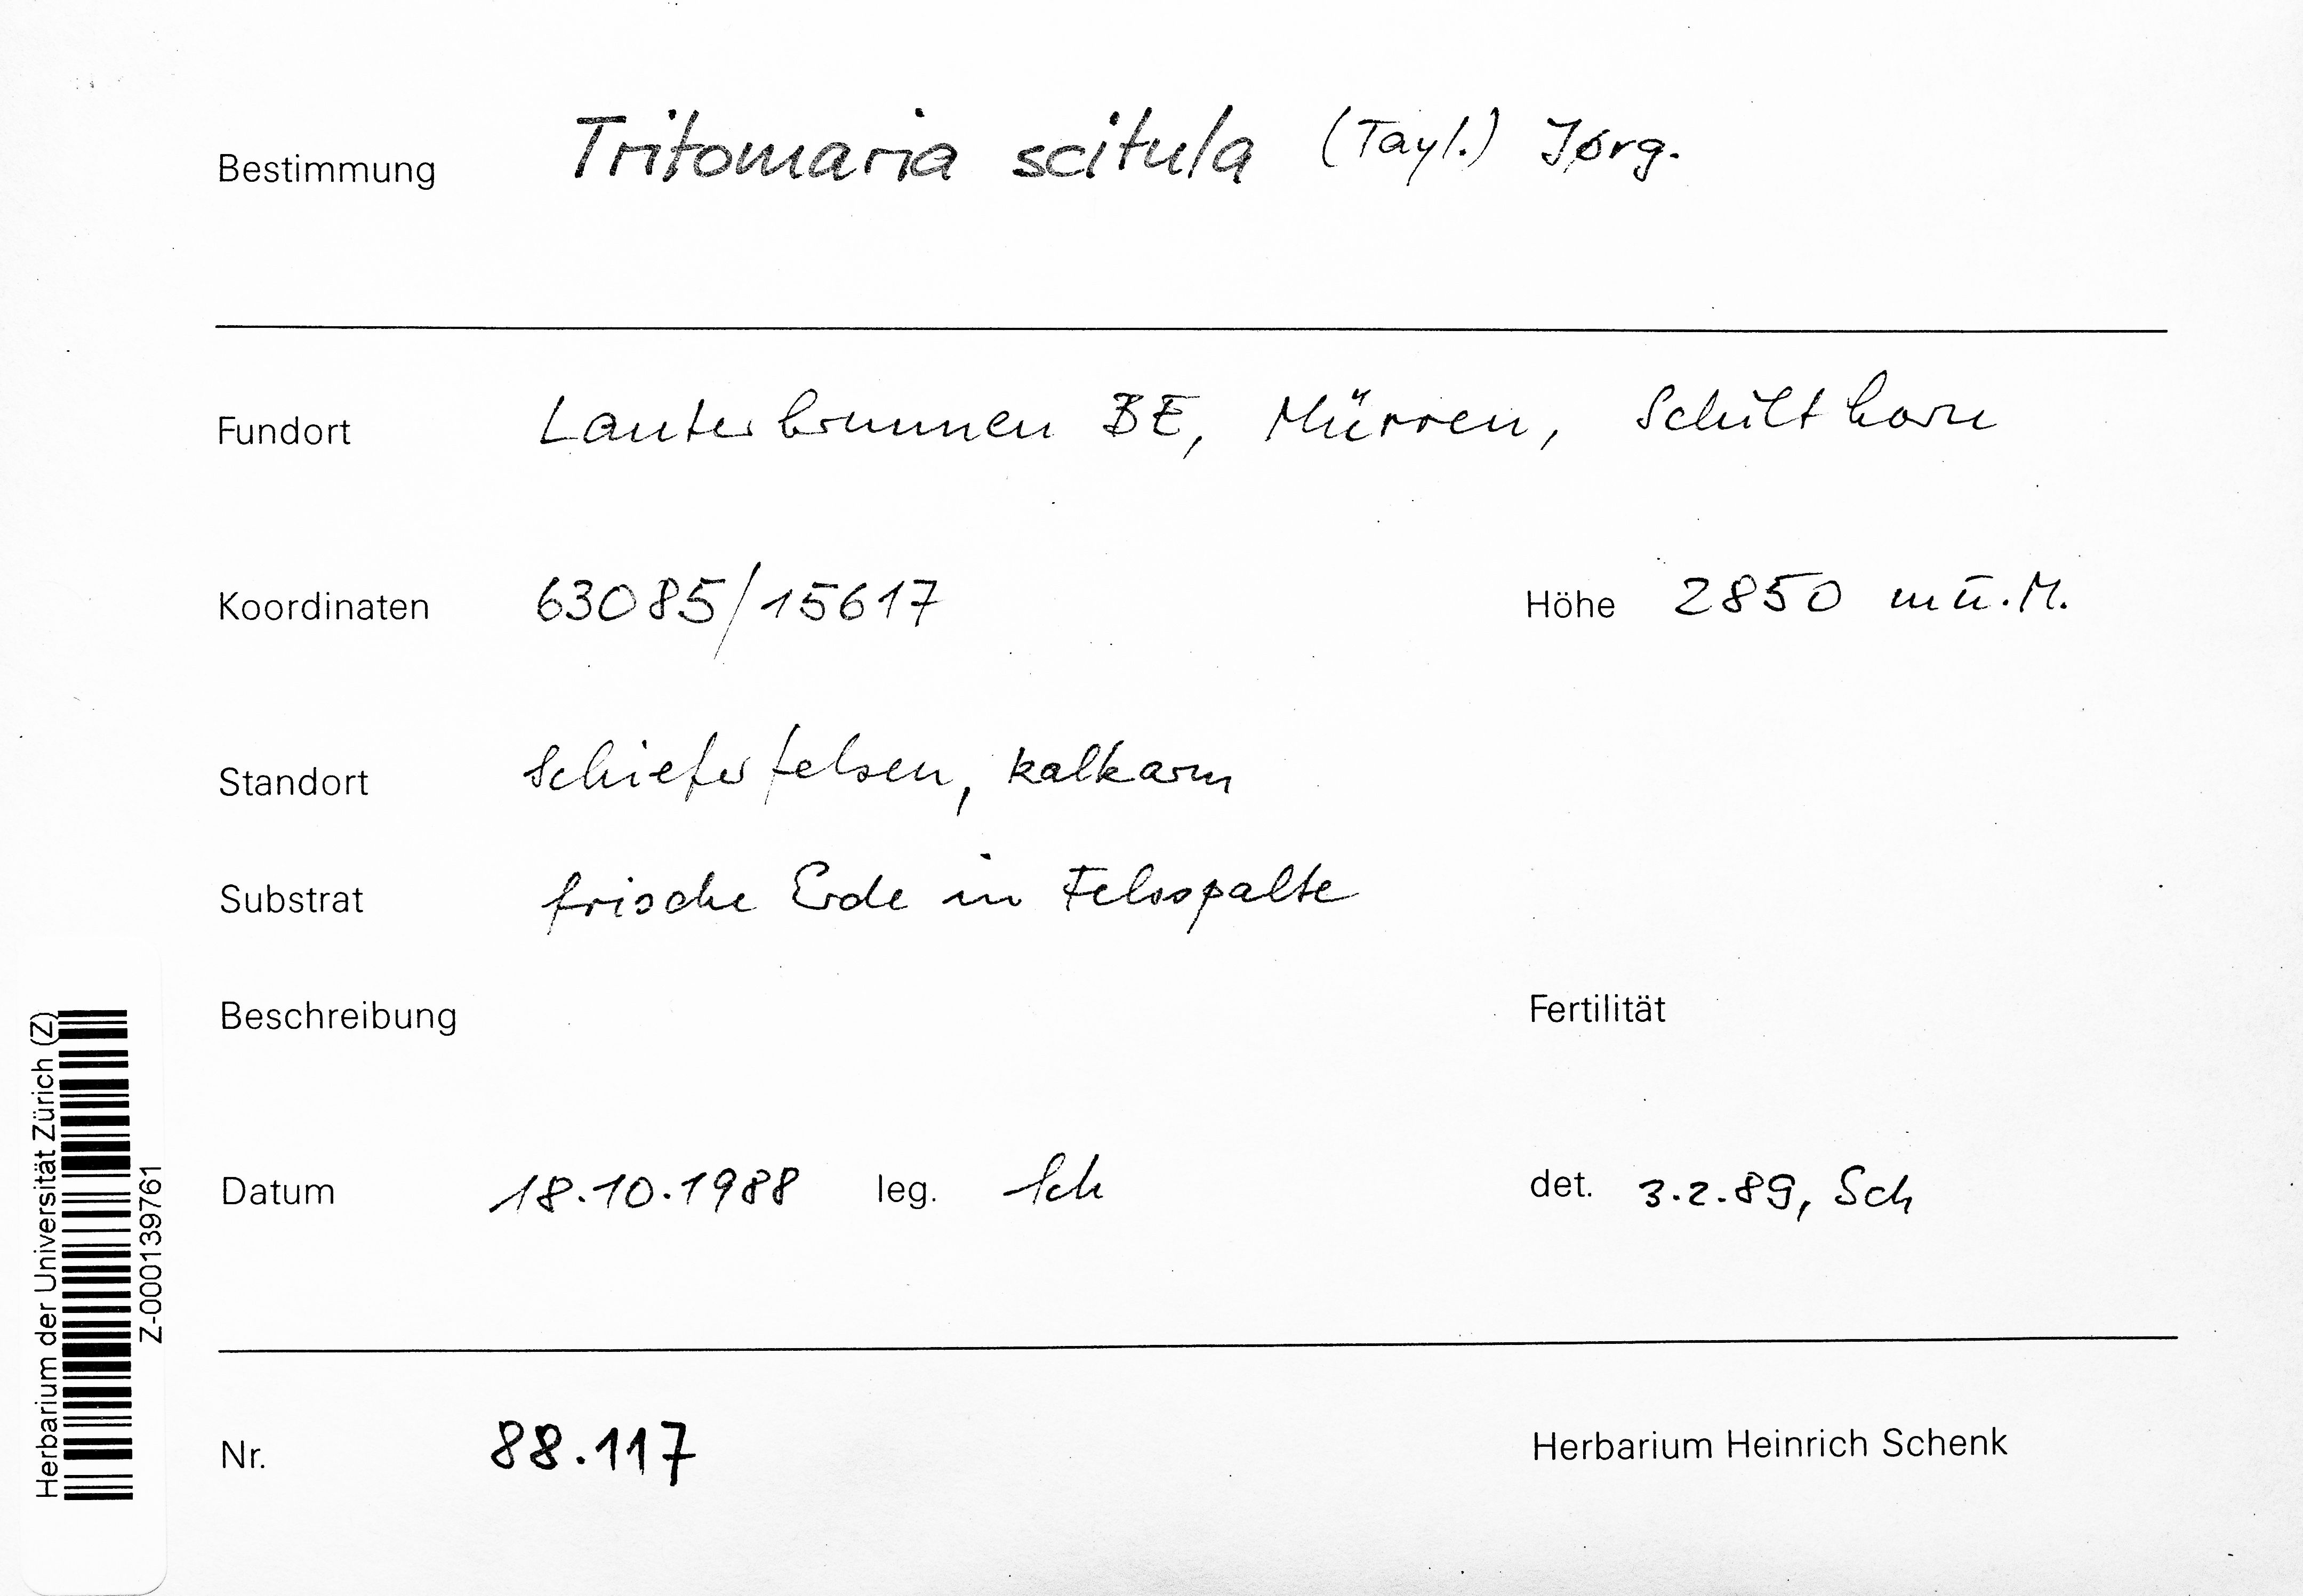 Bestimmung Tritomaria scitula (Tayl.) Jørg.
Fundort Lauterbrunnen BE, Mürren, Schilthorn
Koordinaten 63085/15617 Höhe 2850 m ü.M.
Standort Schieferfelsen, kalkarm
Substrat frische Erde in Felsspalte
Beschreibung Fertilität
Datum 18.10.1988 leg. Sch det. 3.2.89, Sch
Nr. 88.117 Herbarium Heinrich Schenk
Herbarium der Universität Zürich (Z)
Z-000139761